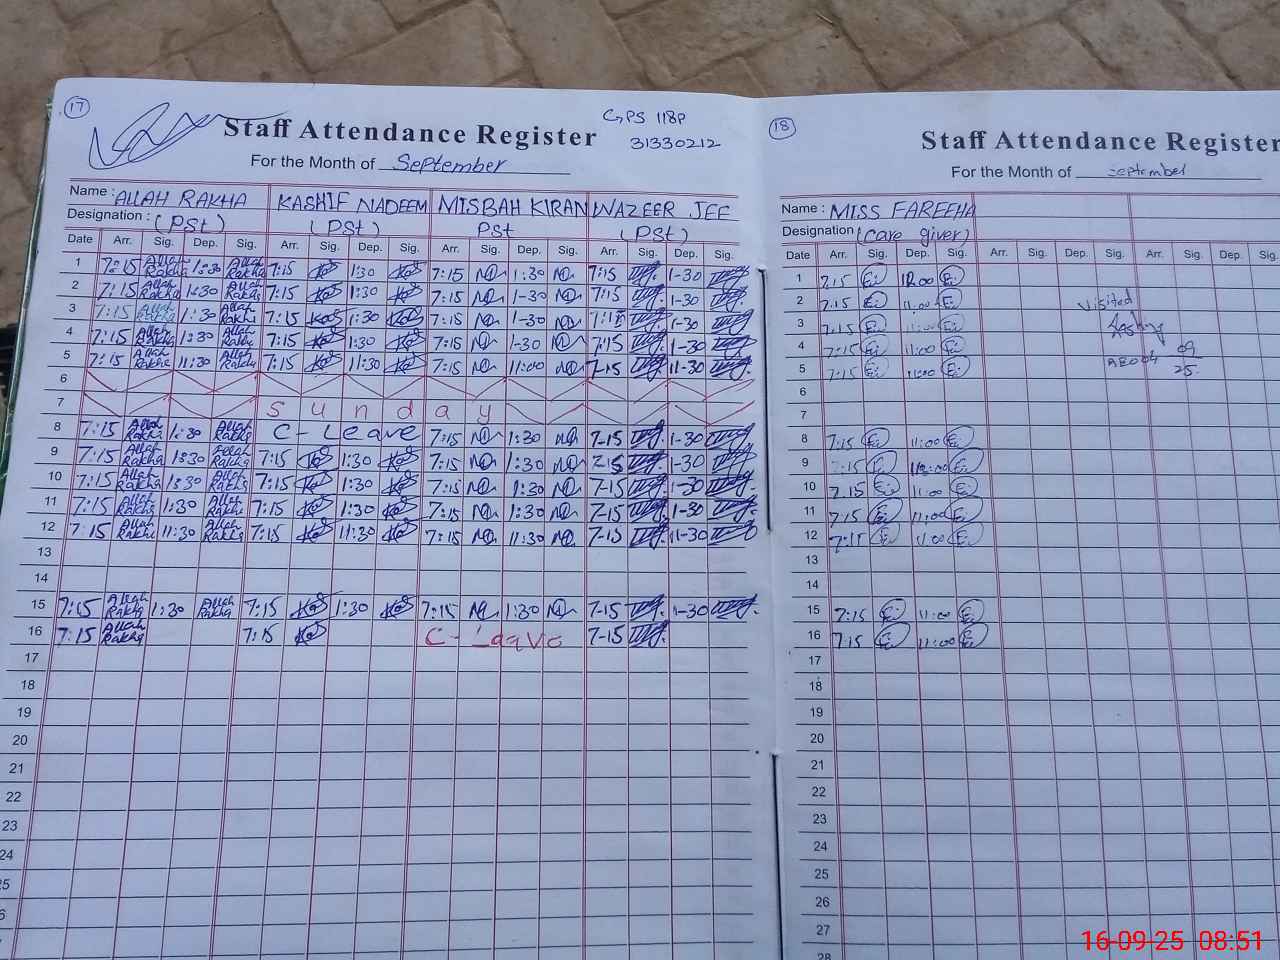 17
Staff Attendance Register
GPS 118P
31330212
For the Month of September
Name : ALLAH RAKHA KASHIF NADEEM MISBAH KIRAN WAZEER JEE
Designation : (PSt) (PSt) PSt (PSt)
Date Arr. Sig. Dep. Sig. Arr. Sig. Dep. Sig. Arr. Sig. Dep. Sig. Arr. Sig. Dep. Sig.
1 7:15 Allah Rakha 1:30 Allah Rakha 7:15 1:30 7:15 1:30 7:15 1-30
2 7:15 Allah Rakha 1:30 Allah Rakha 7:15 1:30 7:15 1-30 7:15 1-30
3 7:15 Allah Rakha 1:30 Allah Rakha 7:15 1:30 7:15 1-30 7:15 1-30
4 7:15 Allah Rakha 1:30 Allah Rakha 7:15 1:30 7:15 1-30 7:15 1-30
5 7:15 Allah Rakha 11:30 Allah Rakha 7:15 11:30 7:15 11:00 7-15 11-30
6
7 Sunday
8 7:15 Allah Rakha 1:30 Allah Rakha C-Leave 7:15 1:30 7-15 1-30
9 7:15 Allah Rakha 1:30 Allah Rakha 7:15 1:30 7:15 1:30 7-15 1-30
10 7:15 Allah Rakha 1:30 Allah Rakha 7:15 1:30 7:15 1:30 7-15 1-30
11 7:15 Allah Rakha 1:30 Allah Rakha 7:15 1:30 7:15 1:30 7-15 1-30
12 7:15 Allah Rakha 11:30 Allah Rakha 7:15 11:30 7:15 11:30 7-15 11-30
13
14
15 7:15 Allah Rakha 1:30 Allah Rakha 7:15 1:30 7:15 1:30 7-15 1-30
16 7:15 Allah Rakha 7:15 C-Leave 7-15
17
18
19
20
21
22
23
24
25
18
Staff Attendance Register
For the Month of september
Name : MISS FAREEHA
Designation (care giver)
Date Arr. Sig. Dep. Sig. Arr. Sig. Dep. Sig. Arr. Sig. Dep.
1 7:15
2 7:15 11:00 Visited
3 7:15 11:00
4 7:15 11:00 09
5 7:15 11:00 AEO04 25
6
7
8 7:15 11:00
9 7:15
10 7:15 11:00
11 7:15 11:00
12 7:15 11:00
13
14
15 7:15 11:00
16 7:15 11:00
17
18
19
20
21
22
23
24
25
26
27
28
16-09-25 08:51